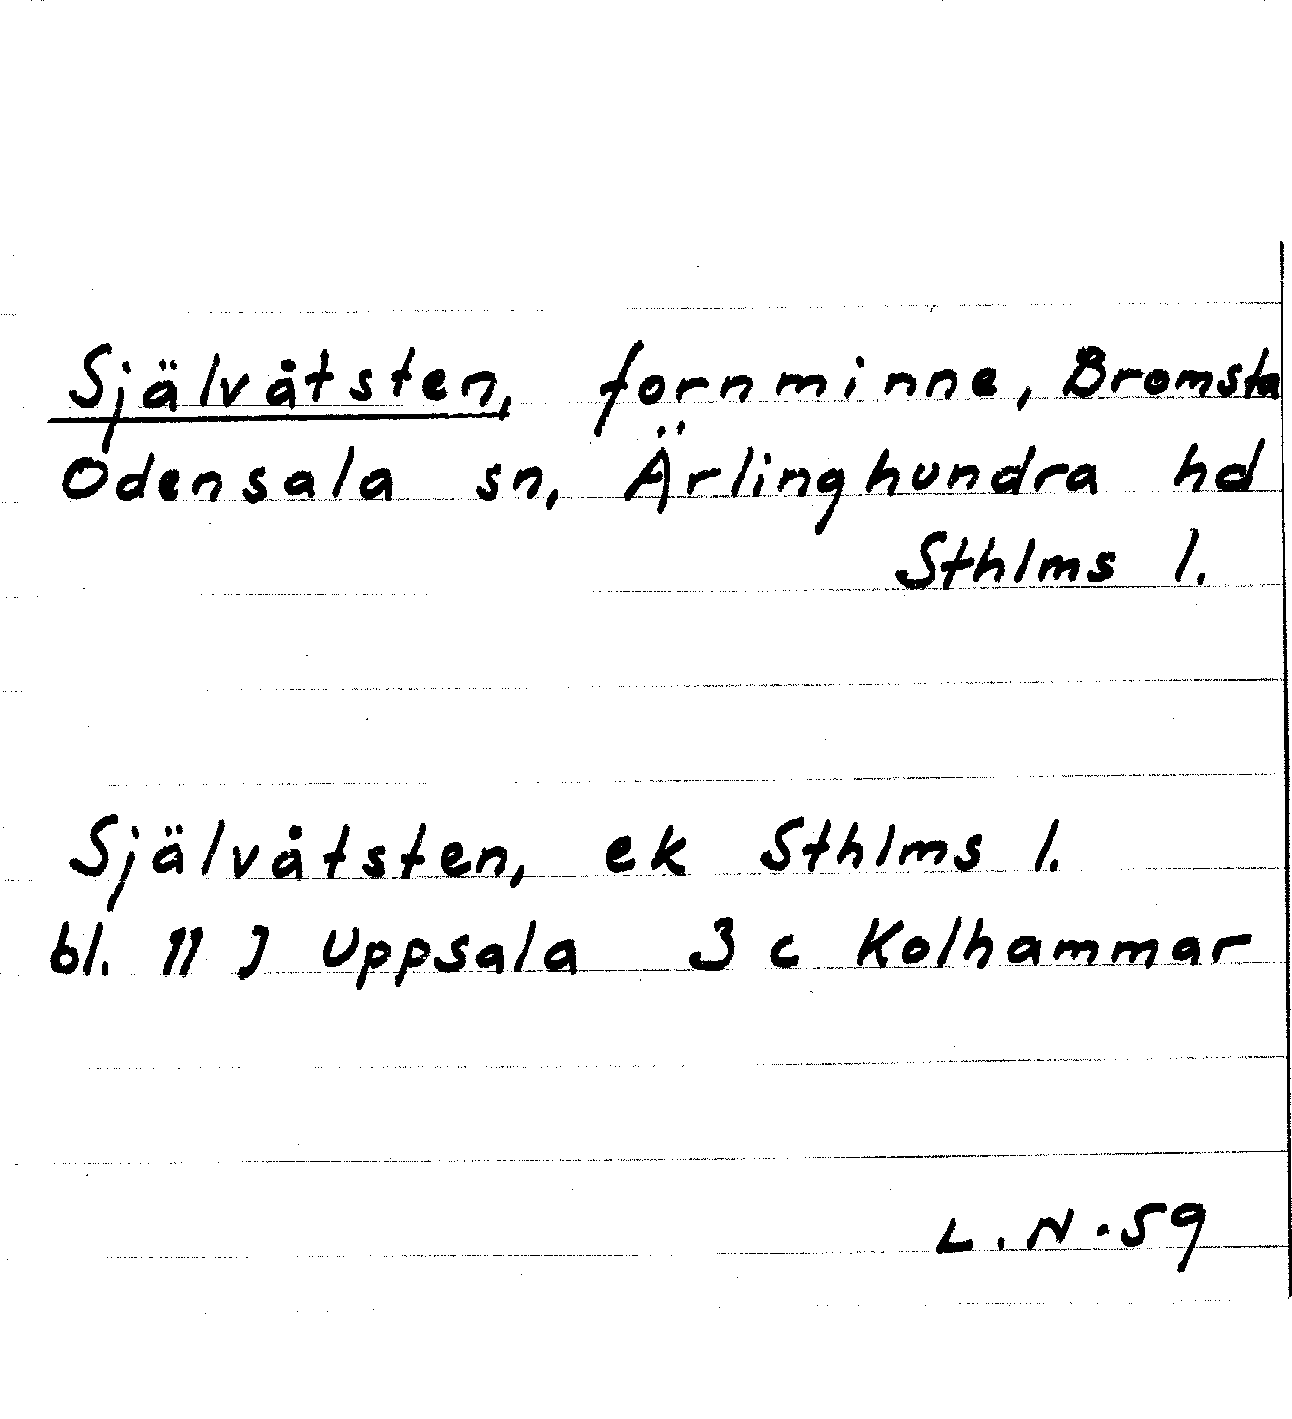 Självåtsten, fornminne, Bromsta
Odensala sn, Ärlinghundra hd
Sthlms l.
Självåtsten, ek Sthlms l.
bl. 11 J Uppsala 3 c Kolhammar
L.N.59